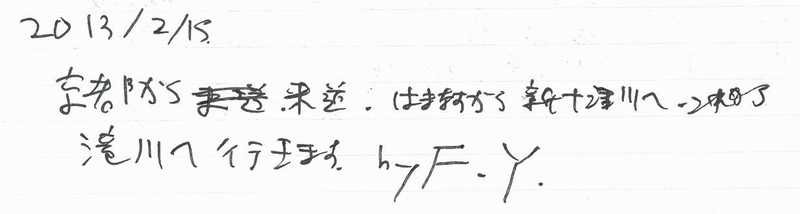 2013/2/15.
京都から 来道. はまますから 新十津川へ.
滝川へ 行きます. by F.Y.